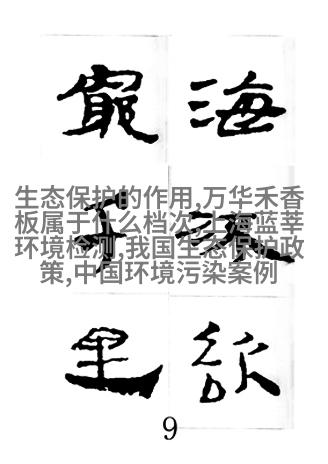 海流欲
窮千里
生态保护的作用,万华禾香
板属于什么档次,上海蓝莘
环境检测,我国生态保护政
策,中国环境污染案例
9